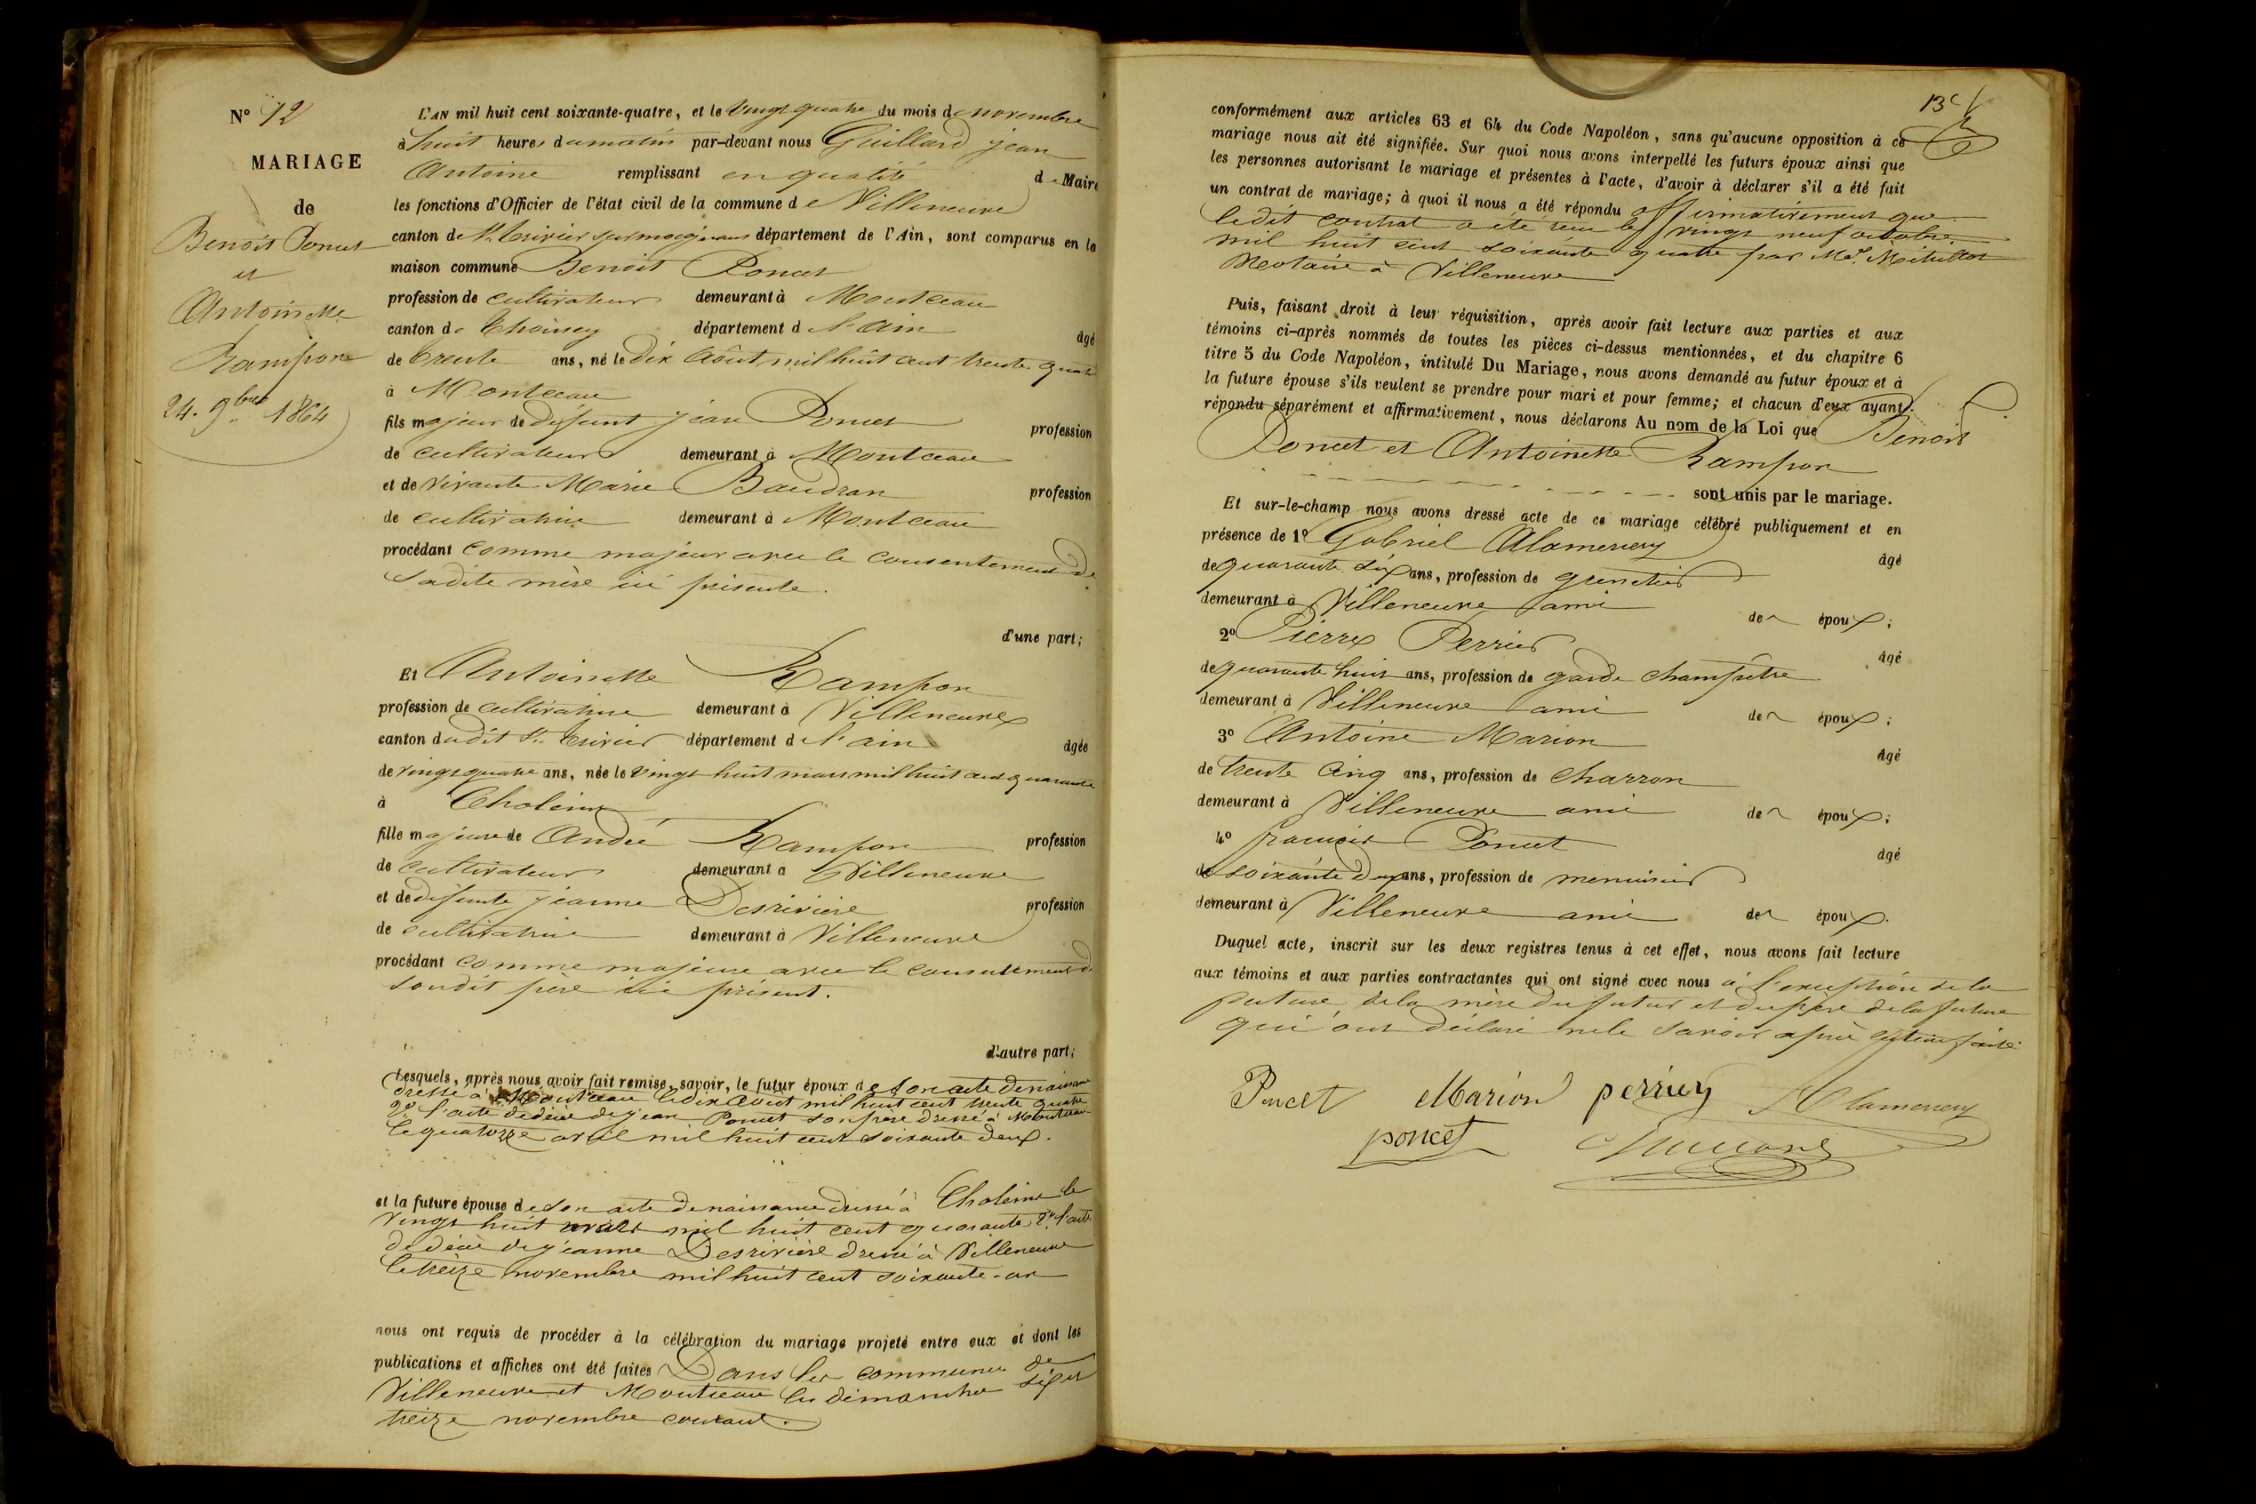 N° 12
MARIAGE
de
Benoît Poncet
et
Antoinette
Rampon
24. 9bre 1864
L'AN mil huit cent soixante-quatre, et le vingt quatre du mois de novembre
à huit heures du matin par-devant nous Guillard jean
Antoine remplissant en qualité de Maire
les fonctions d'Officier de l'état civil de la commune de Villeneuve
canton de St. Trivier sur moignans département de l'Ain, sont comparus en la
maison commune Benoît Poncet
profession de cultivateur demeurant à Montceau
canton de Thoissey département de l'ain âgé
de trente ans, né le dix Août mil huit cent trente quatre
à Montceau
fils majeur de défunt jean Poncet profession
de cultivateur demeurant à Montceau
et de vivante Marie Baudran profession
de cultivatrice demeurant à Montceau
procédant comme majeur avec le consentement de
sadite mère ici présente.
d'une part;
Et Antoinette Rampon
profession de cultivatrice demeurant à Villeneuve
canton dudit St. Trivier département de l'ain âgée
de vingt quatre ans, née le vingt huit mars mil huit cent quarante
à Choleins
fille majeure de André Rampon profession
de cultivateur demeurant à Villeneuve
et de défunte jeanne Desrivière profession
de cultivatrice demeurant à Villeneuve
procédant comme majeure avec le consentement de
sondit père ici présent.
d'autre part;
Lesquels, après nous avoir fait remise, savoir, le futur époux de son acte de naissance
dressé à Montceau le dix août mil huit cent trente quatre
2° l'acte de décès de jean Poncet son père dressé à Montceau
le quatorze avril mil huit cent soixante deux.
et la future épouse de son acte de naissance dressé à Choleins le
vingt huit mars mil huit cent quarante 2° l'acte
de décès de jeanne Desrivière dressé à Villeneuve
le treize novembre mil huit cent soixante-un
nous ont requis de procéder à la célébration du mariage projeté entre eux et dont les
publications et affiches ont été faites Dans les communes de
Villeneuve et Montceau les dimanches six et
treize novembre courant.
13e
conformément aux articles 63 et 64 du Code Napoléon, sans qu'aucune opposition à ce
mariage nous ait été signifiée. Sur quoi nous avons interpellé les futurs époux ainsi que
les personnes autorisant le mariage et présentes à l'acte, d'avoir à déclarer s'il a été fait
un contrat de mariage; à quoi il nous a été répondu affirmativement que
ledit contrat a été reçu le vingt neuf octobre
mil huit cent soixante quatre par Me.
Notaire à Villeneuve
Puis, faisant droit à leur réquisition, après avoir fait lecture aux parties et aux
témoins ci-après nommés de toutes les pièces ci-dessus mentionnées, et du chapitre 6
titre 5 du Code Napoléon, intitulé Du Mariage, nous avons demandé au futur époux et à
la future épouse s'ils veulent se prendre pour mari et pour femme; et chacun d'eux ayant
répondu séparément et affirmativement, nous déclarons Au nom de la Loi que Benoît
Poncet et Antoinette Rampon
sont unis par le mariage.
Et sur-le-champ nous avons dressé acte de ce mariage célébré publiquement et en
présence de 1° Gabriel Alamercery âgé
de quarante six ans, profession de grenetier
demeurant à Villeneuve ami de époux;
2° Pierre Perrier âgé
de quarante huit ans, profession de garde champêtre
demeurant à Villeneuve ami de époux;
3° Antoine Marion âgé
de trente cinq ans, profession de charron
demeurant à Villeneuve ami de époux;
4° françois Poncet âgé
de soixante deux ans, profession de menuisier
demeurant à Villeneuve ami de époux.
Duquel acte, inscrit sur les deux registres tenus à cet effet, nous avons fait lecture
aux témoins et aux parties contractantes qui ont signé avec nous à l'exception de la
future, de la mère du futur et du père de la future
qui ont déclaré ne le savoir après lecture faite
Poncet Marion perrier Alamercery
poncet